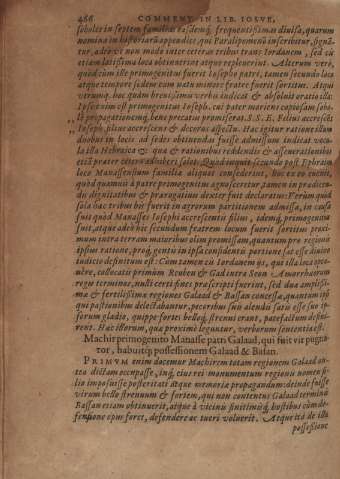 486 COMMENT. IN LIB. IOSVE,
soboles in septem familias easdemq́; frequentissimas diuisa, quarum
nomina in historiarũ appendice, que Paralipomenõ inscribitur, signã-
tur, adeo vt non modo inter ceteras tribus trans Iordanem, sed cis
etiam latissima loca obtinuerint atque expleuerint. Alterum verò,
quòd cùm ille primogenitus fuerit Iosepho patri, tamen secundo loco
atque tempore sedem cum natu minore fratre fuerit sortitus. Atqui
verumq́; hoc quàm breuissimis verbis indicat & absoluit oratio illa:
Is
Ioseph, plius accrescens & decorus aspectu. Hac igitur ratione illum
duobus in locis ad sedes obtinendas fuisse admissum indicat voca-
la illa Hebraica quæ rationibus reddendis & asseuerationibus
etiã præter cetera adhiberi solet. Quòd inquit secundo post Ephraim
loco Manassensium familia aliquas consederint, hoc ex eo euenit,
quòd quamuis à patre primogenitus agnosceretur, tamen in prædicen-
dis dignitatibus & prærogatiuis dexter fuit declaratus: Verùm quòd
sola hac tribus bis fuerit in agrorum partitionem admissa, in causa
fuit quòd Manasses Iosephi accrescentis filius, idemq́; primogenitus
fuit, atque adeo hic secundum fratrem locum fuerit sortitus proxi-
mum
ipsius ratione, proq́; gentis in ipsa considentis portione sat esse diuino
iudicio definitum est: Cùm tamen cis Iordanem ijs, qui illa loca optine-
uêre, collocatis primùm Reubeu & Gad intra Seon Amorrhæorum
regis terminos, nulli certi fines præscripti fuerint, sed duæ amplissi-
mæ & fertilissimæ regiones Galaad & Basan concessæ, quantum ipsi
qui pastionibus delectabantur, pecoribus suis alendis satis esse suo ip-
sorum gladio, quippe fortes belloq́; strenui erant, patefactum defini-
rent. Hac illorum, quæ proximè leguntur, verborum sententia est.
Machir primogenito Manasse patri Galaad, qui fuit vir pugna-
tor, habuitq́; possessionem Galaad & Basan.
PRIMVM enim docemur Machirem totam regionem Galaad an-
tea dictam occupasse, inq́; eius rei monumentum regionis nomen fi-
lio imposuisse posteritati atque memoriæ propagandum: deinde fuisse
virum bello strenuum & fortem, qui non contentus Galaad terminis
Bassan etiam obtinuerit, atque à vicinis finitimisq́; hostibus cùm de-
fensione opus foret, defendere ac tueri voluerit. Atque ita de illa
possessione